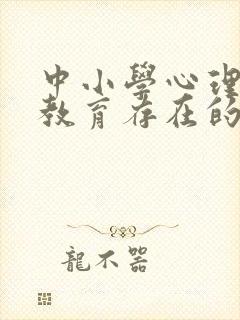 中小學心理
教育存在的
龍不器